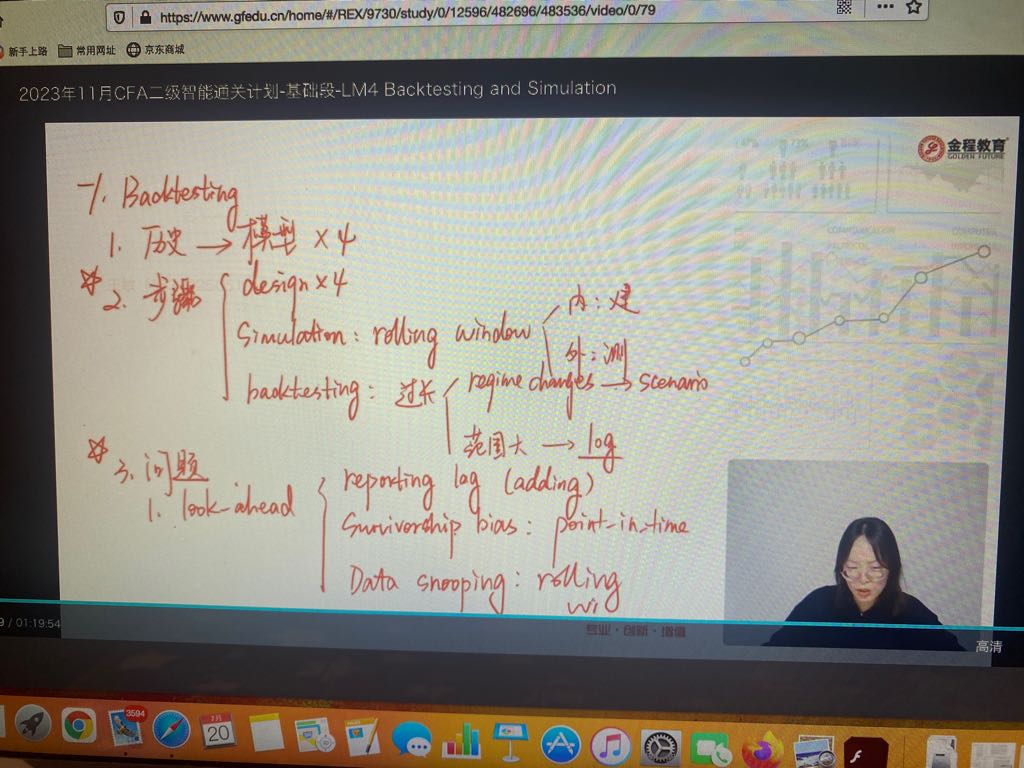 https://www.gfedu.cn/home/#/REX/9730/study/0/12596/482696/483536/video/0/79
新手上路 常用网址 京东商城
2023年11月CFA二级智能通关计划-基础段-LM4 Backtesting and Simulation
金程教育
GOLDEN FUTURE
一、Backtesting
1. 历史 → 模型 ×4
☆ 2. 步骤
design ×4
Simulation: rolling window
内: 建
外: 测
backtesting: 过长
regime changes → scenario
范围大 → log
☆ 3. 问题
1. look-ahead
reporting lag (adding)
Survivorship bias: point-in-time
Data snooping: rolling
wi
专业·创新·增值
9 / 01:19:54
高清
3594
7月
20